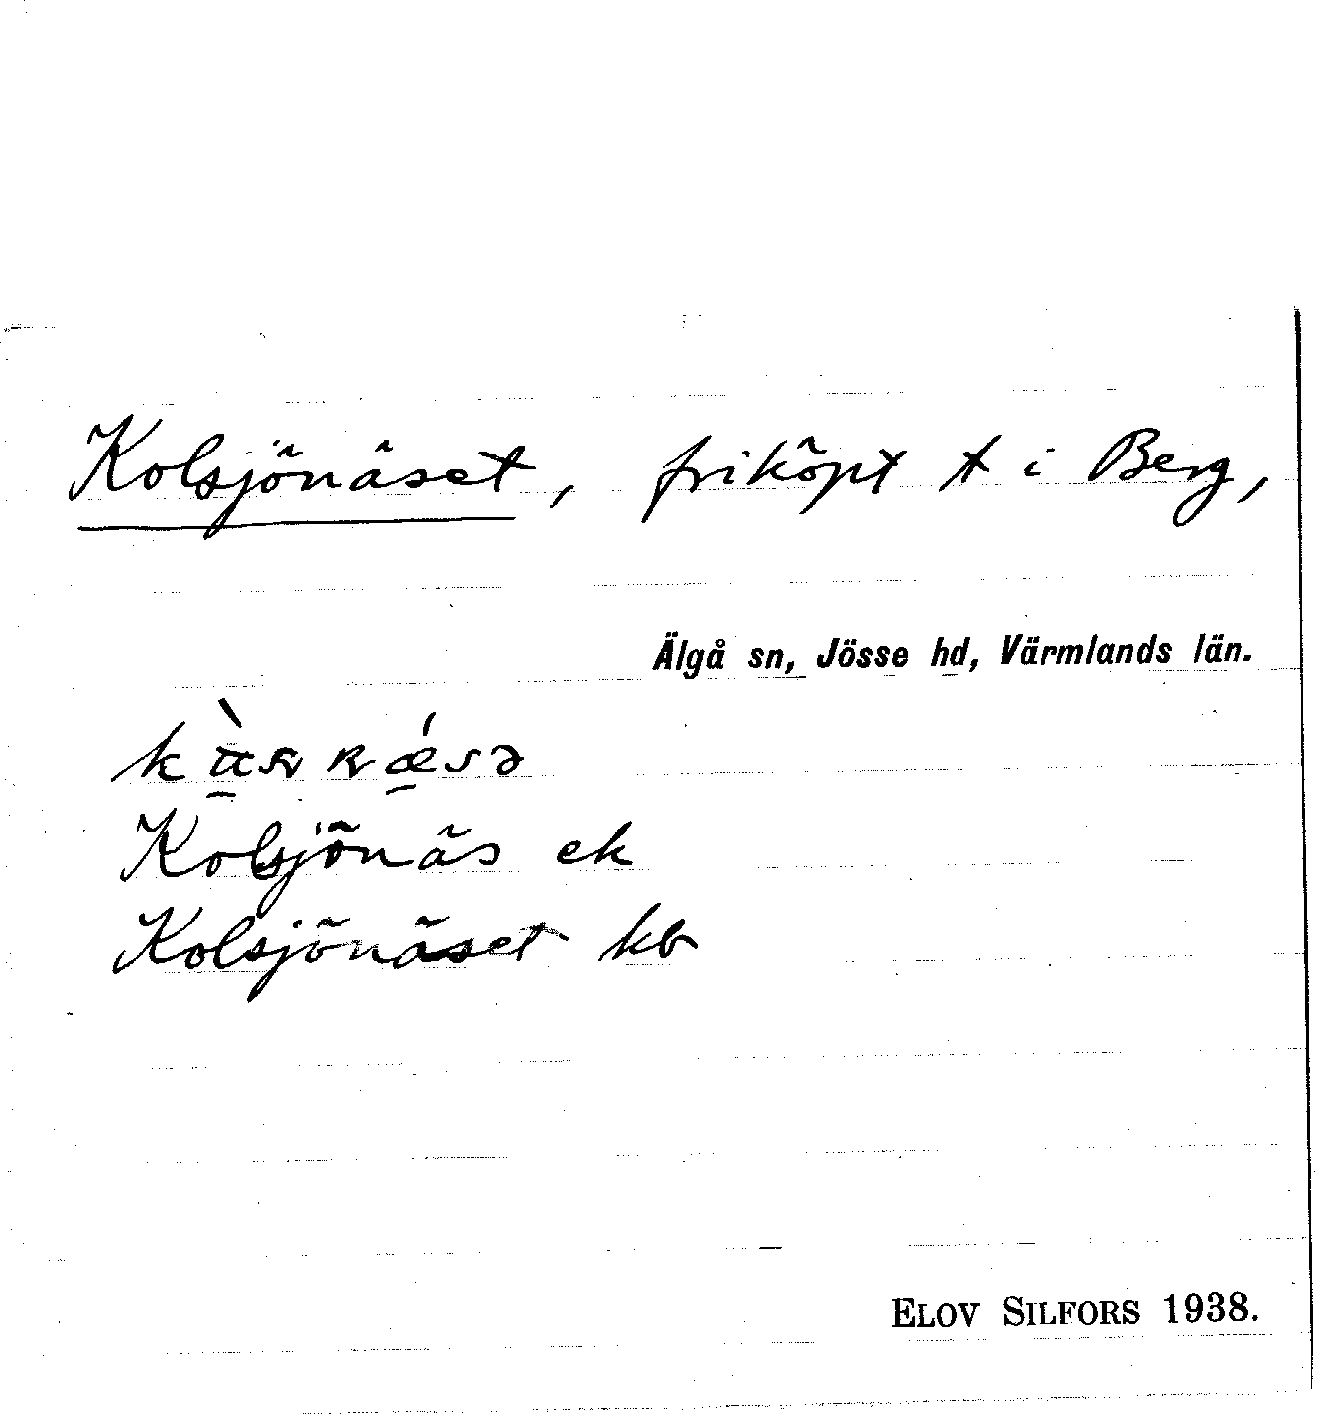 Kolsjönäset, friköpt t i Berg,
Älgå sn, Jösse hd, Värmlands län.
Kolsjönäs ek
Kolsjönäset kb
ELOV SILFORS 1938.